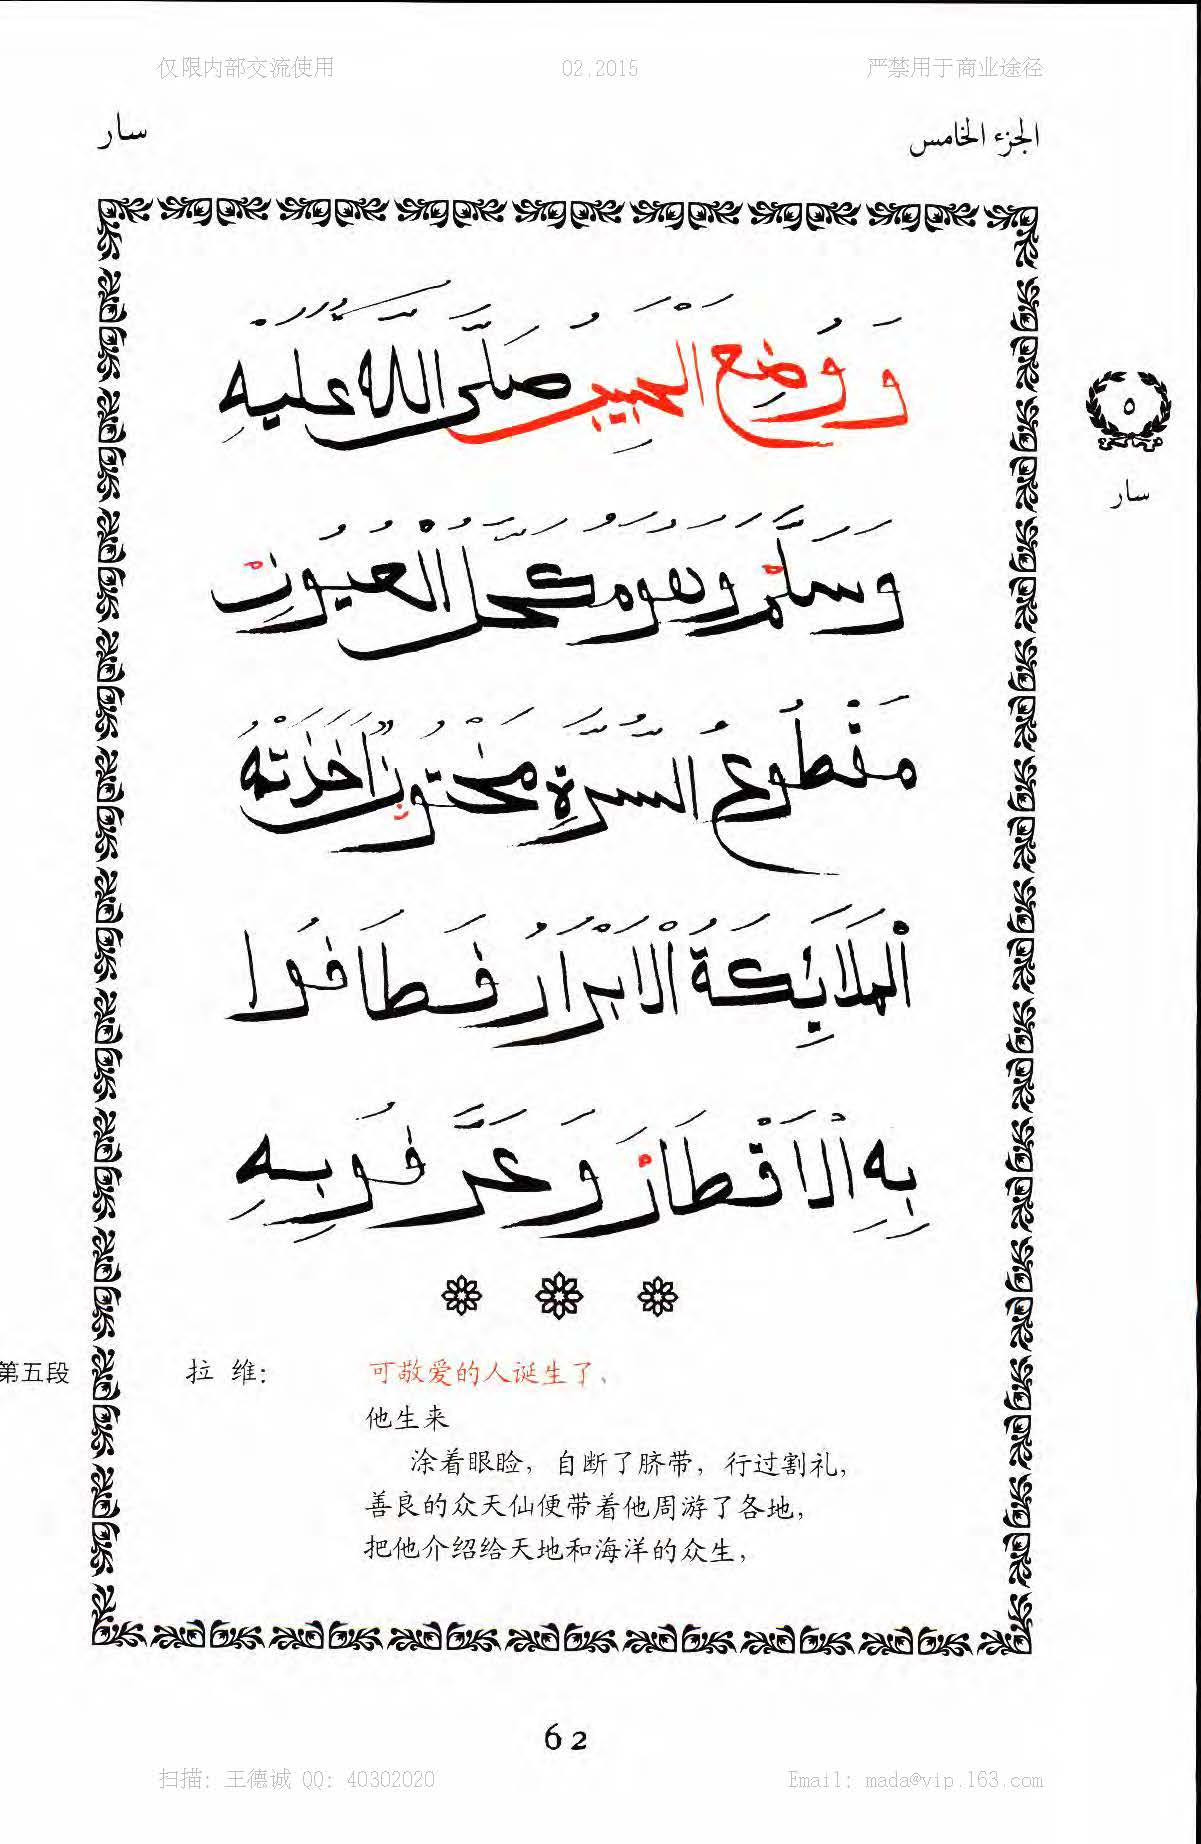 仅限内部交流使用 02.2015 严禁用于商业途径
سار الجزء الخامس
وَوُضِعَ الْحَبِيبُ صَلَّى اللَّهُ عَلَيْهِ
٥
سار
وَسَلَّمَ وَهُوَ مُكَحَّلُ الْعُيُونِ
مَقْطُوعُ السُّرَّةِ مَخْتُونٌ اَخَذَتْهُ
الْمَلَائِكَةُ الْاَبْرَارُ فَطَافُوا
بِهِ الْاَقْطَارَ وَعَرَّفُو بِهِ
第五段 拉 维： 可敬爱的人诞生了、
他生来
涂着眼睑，自断了脐带，行过割礼，
善良的众天仙便带着他周游了各地，
把他介绍给天地和海洋的众生，
62
扫描: 王德诚 QQ: 40302020 Email: mada@vip.163.com